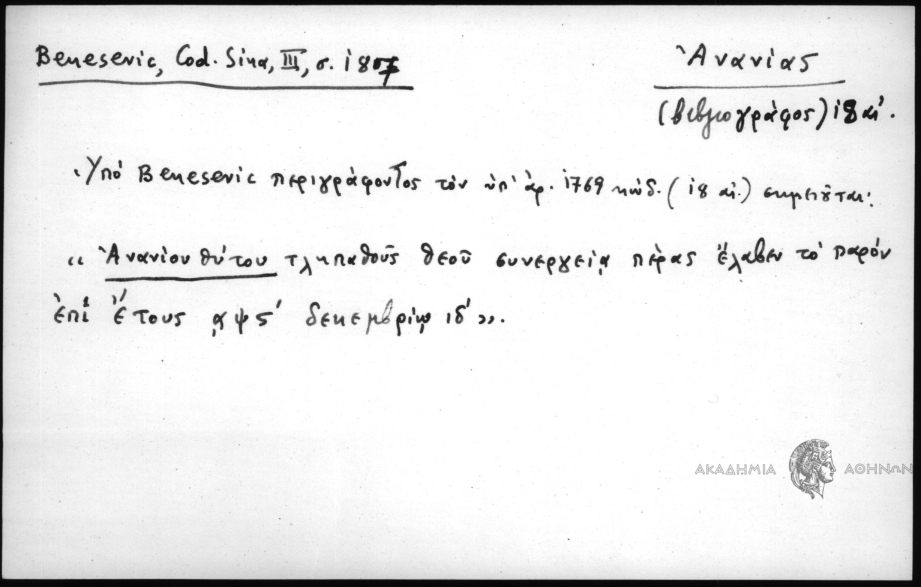 Benesevic, Cod. Sina, III, σ. 187
Ἀνανίας
(βιβλιογράφος) 18 αἰ.
Ὑπό Benesevic περιγράφοντος τόν ὑπ' ἀρ. 1769 κώδ. (18 αἰ.) σημειοῦται:
«Ἀνανίου θύτου τληπαθοῦς θεοῦ συνεργείᾳ πέρας ἔλαβεν τό παρόν
ἐπί ἔτους ͵αψϛ' δεκεμβρίῳ ιδ'».
ΑΚΑΔΗΜΙΑ ΑΘΗΝΩΝ